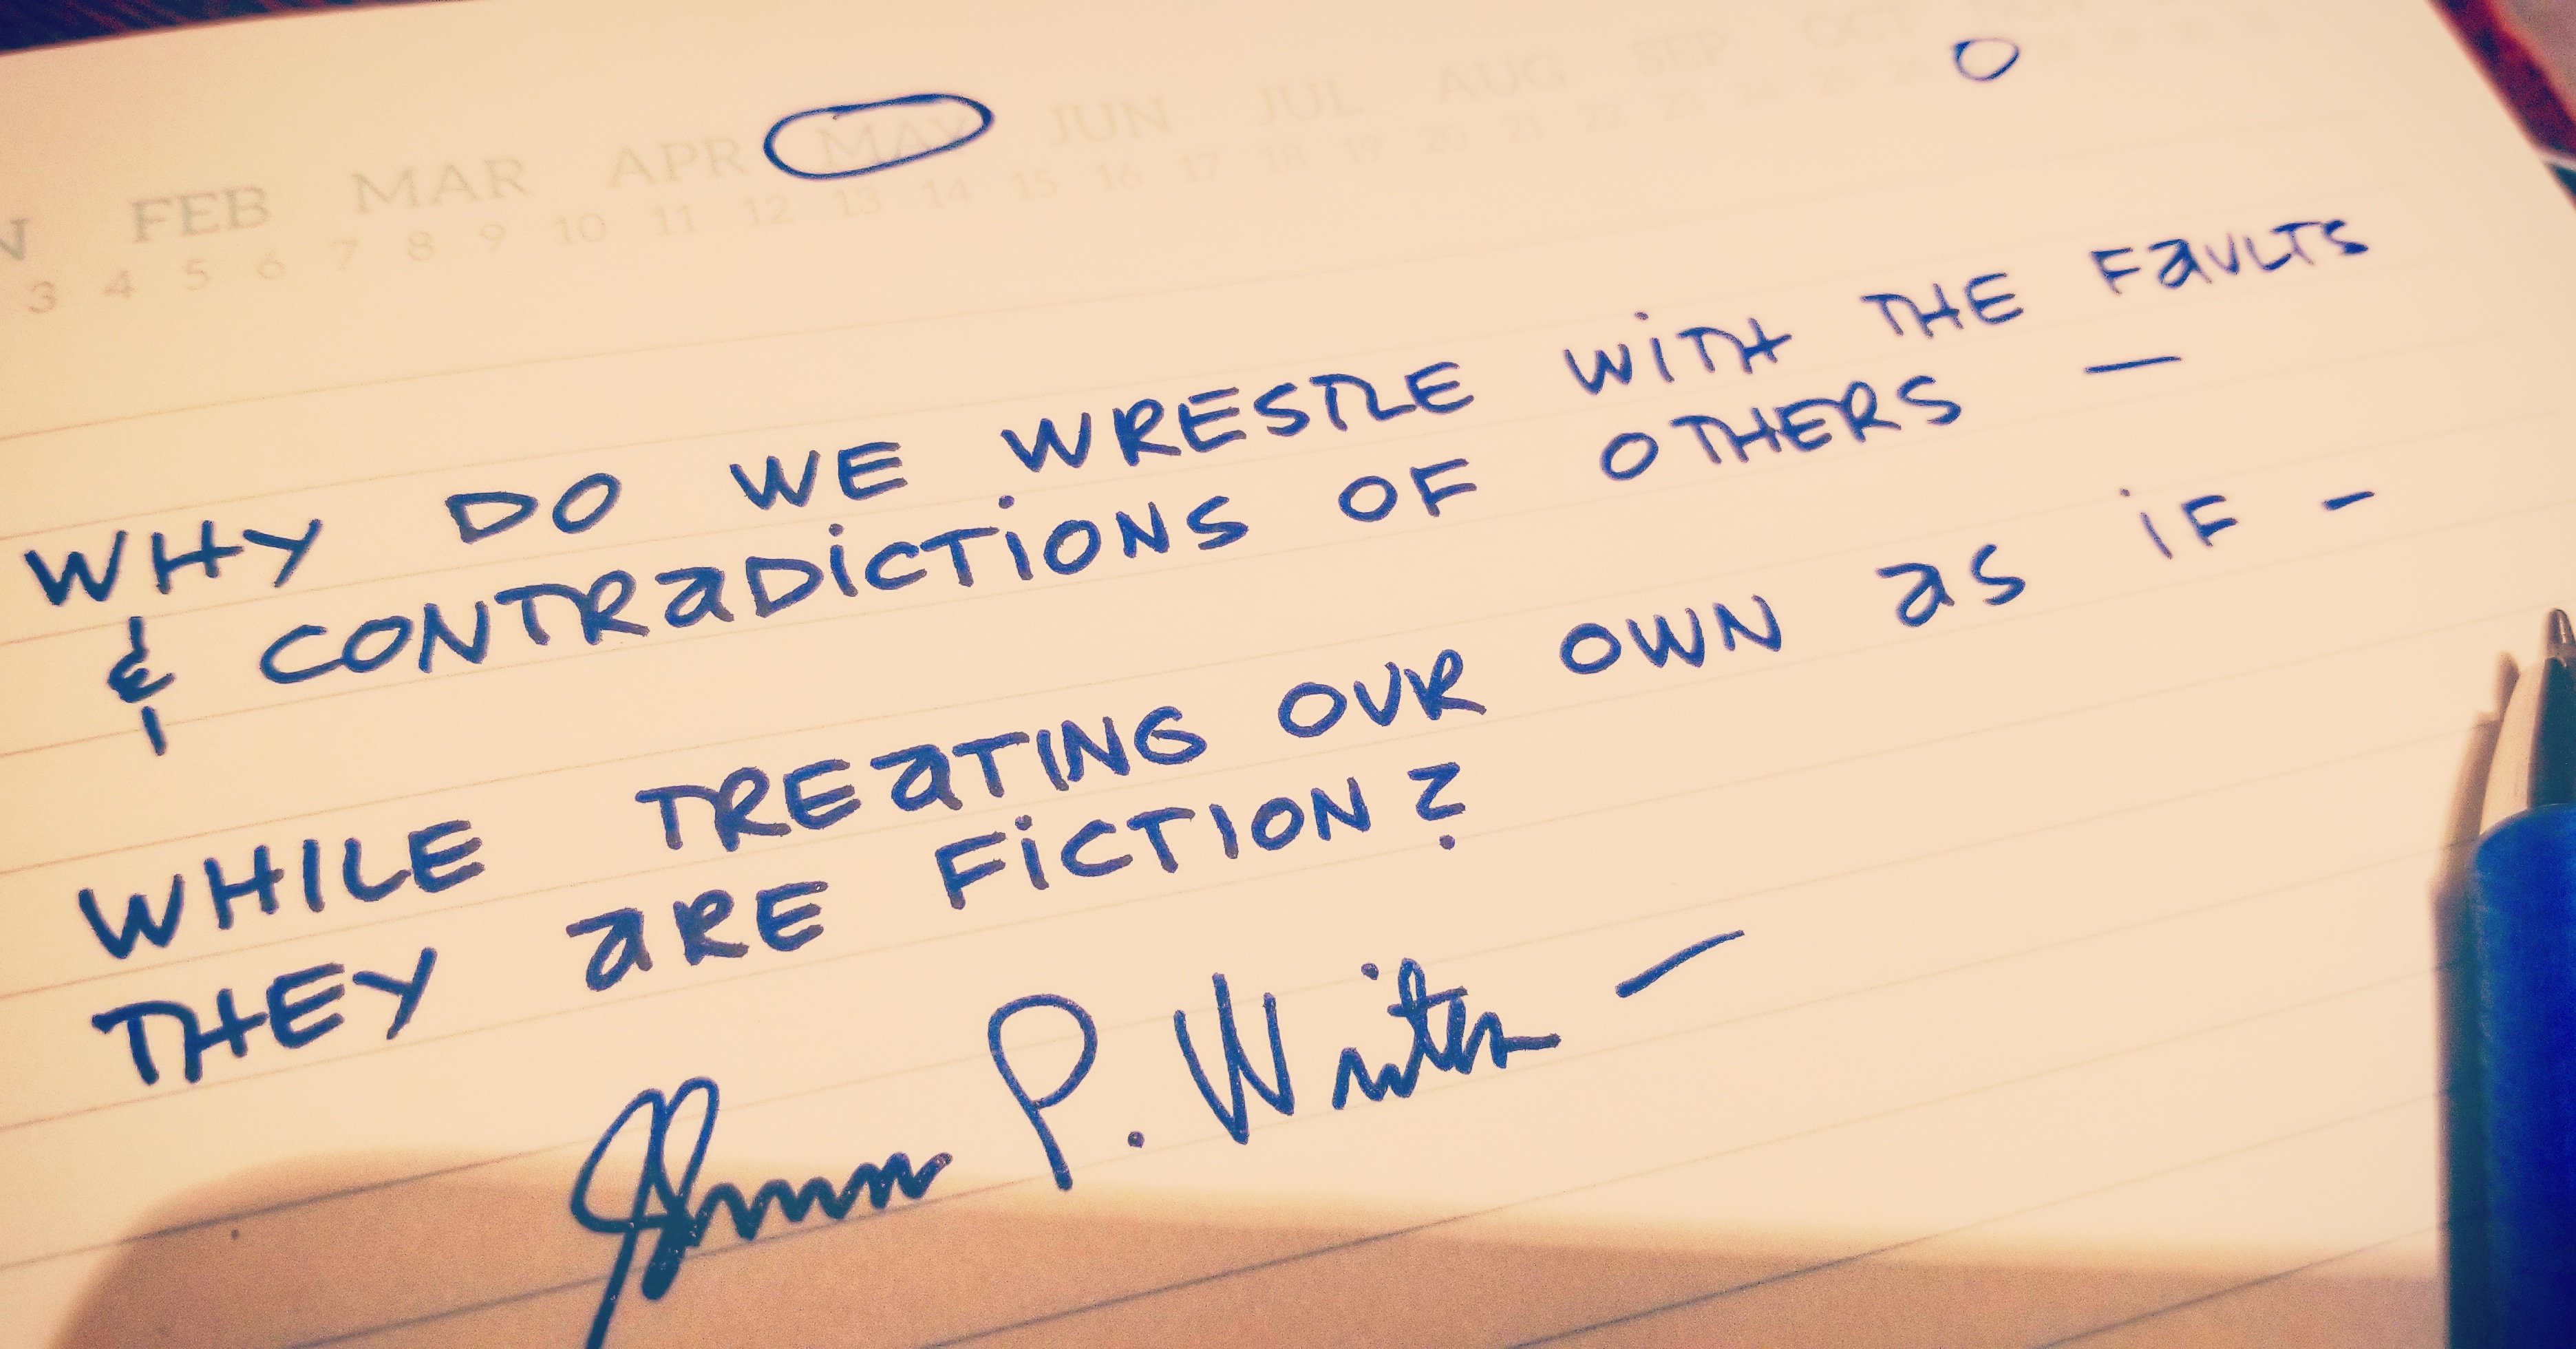 FEB MAR APR MAY JUN JUL AUG SEP OCT NOV
3 4 5 6 7 8 9 10 11 12 13 14 15 16 17 18 19 20 21 22 23 24 25
WHY DO WE WRESTLE WITH THE FAULTS
& CONTRADICTIONS OF OTHERS —
WHILE TREATING OUR OWN AS IF -
THEY ARE FICTION?
P. Writer —